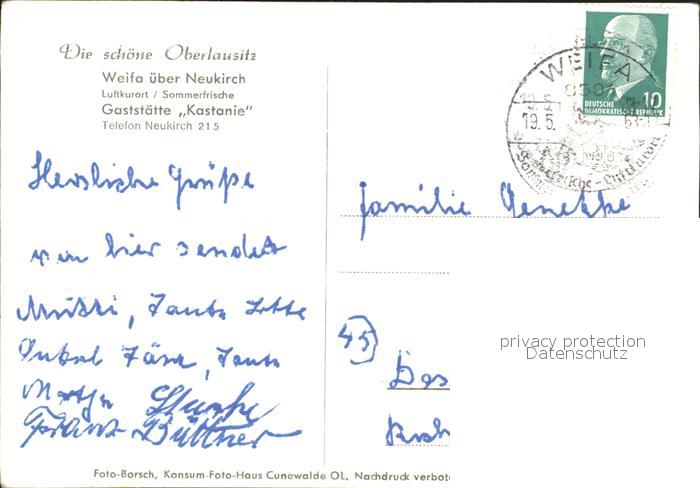 Die schöne Oberlausitz
Weifa über Neukirch
Luftkurort / Sommerfrische
Gaststätte „Kastanie"
Telefon Neukirch 215
Herzliche Grüße
von hier sendet
Mutti, Tante Lotte
Onkel
Tante
Martha
Franz Büttner
WEIFA
8501
19.5.
DEUTSCHE
DEMOKRATISCHE REPUBLIK
10
Familie
45
privacy protection
Datenschutz
Foto-Borsch, Konsum-Foto-Haus Cunewalde OL, Nachdruck verbot